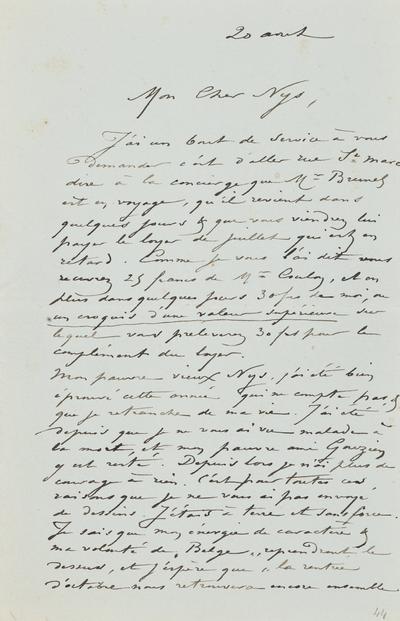 20 aout
Mon Cher Nys,
J'ai un bout de service à vous
demander c'est d'aller rue St Marc
dire à la concierge que Mr Brunel
est en voyage, qu'il revient dans
quelques jours & que vous viendrez lui
payer le loyer de juillet qui est en
retard. Comme je vous l'ai dit vous
recevrez 25 francs de Mr, et en
plus dans quelques jours 30 frs de moi, ou
un croquis d'une valeur supérieure sur
lequel vous preleverez 30 frs pour le
complément du loyer.
Mon pauvre vieux Nys, j'ai été bien
éprouvé cette année qui ne compte pas &
que je retranche de ma vie. J'ai été
depuis que je ne vous ai vu malade à
la mort, et mon pauvre ami Gouzien
y est resté. Depuis lors je n'ai plus de
courage à rien. C'est pour toutes ces
raisons que je ne vous ai pas envoyé
de dessins. J'étais à terre et sans force.
Je sais que mon énergie de caractère &
ma volonté de „Belge„ reprendront le
dessus, et j'espère que la rentrée
d'octobre nous retrouvera encore ensemble
44